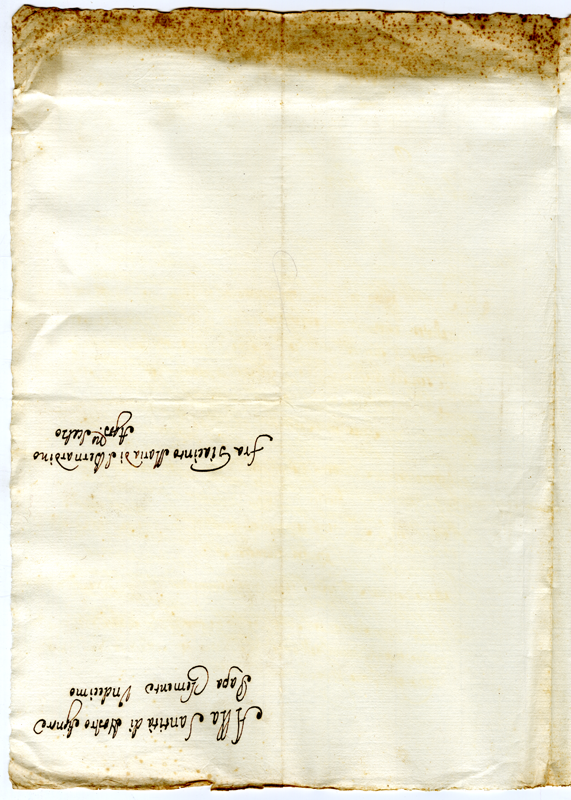 Alla Santità di Nostro Signore
Papa Clemente Undecimo
Fra Giacinto Maria di S. Bernardino
Agos.